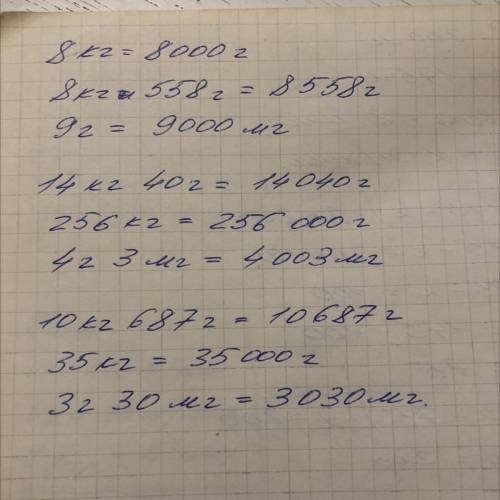 8 кг = 8000 г
8 кг 558 г = 8558 г
9 г = 9000 мг
14 кг 40 г = 14 040 г
256 кг = 256 000 г
4 г 3 мг = 4003 мг
10 кг 687 г = 10 687 г
35 кг = 35 000 г
3 г 30 мг = 3030 мг.